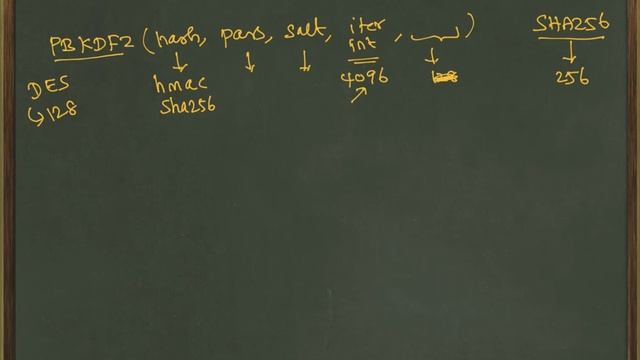 PBKDF2 (hash, pass, salt, iter cnt, )
SHA256
DES
hmac
4096
256
↳128
Sha256